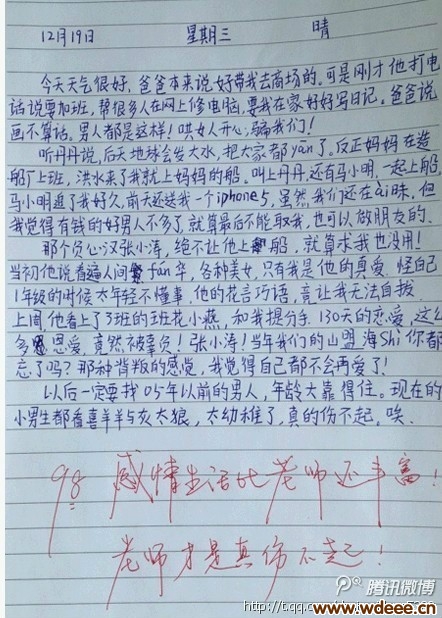 12月19日 星期三 晴
今天天气很好，爸爸本来说好带我去商场的，可是刚才他打电
话说要加班，帮很多人在网上修电脑，要我在家好好写日记。爸爸说
画不算话。男人都是这样！哄女人开心，骗我们！
听丹丹说，后天地球会发大水，把大家都yān了。反正妈妈在造
船厂上班，洪水来了我就上妈妈的船。叫上丹丹，还有马小明，一起上船，
马小明追了我好久，前天还送我一个iphone5，虽然，我们还在ài昧。但
我觉得有钱的好男人不多了，就算最后不能取我，也可以做朋友的。
那个负心汉张小涛，绝不让他上船，就算求我也没用！
当初他说看遍人间fán华，各种美女，只有我是他的真爱，怪自己
1年级的时候太年轻不懂事，他的花言巧语，竟让我无法自拔。
上周，他看上了3班的班花小燕，和我提分手。130天的恋爱，这么
多恩爱，竟然被辜负！张小涛！当年我们的山盟海Shì你都
忘了吗？那种背叛的感觉，我觉得自己都不会再爱了！
以后一定要找05年以前的男人，年龄大靠得住。现在的
小男生都看喜羊羊与灰太狼，太幼稚了，真的伤不起，唉。
98 感情生活比老师还丰富！
老师才是真伤不起！
腾讯微博
www.wdeee.cn